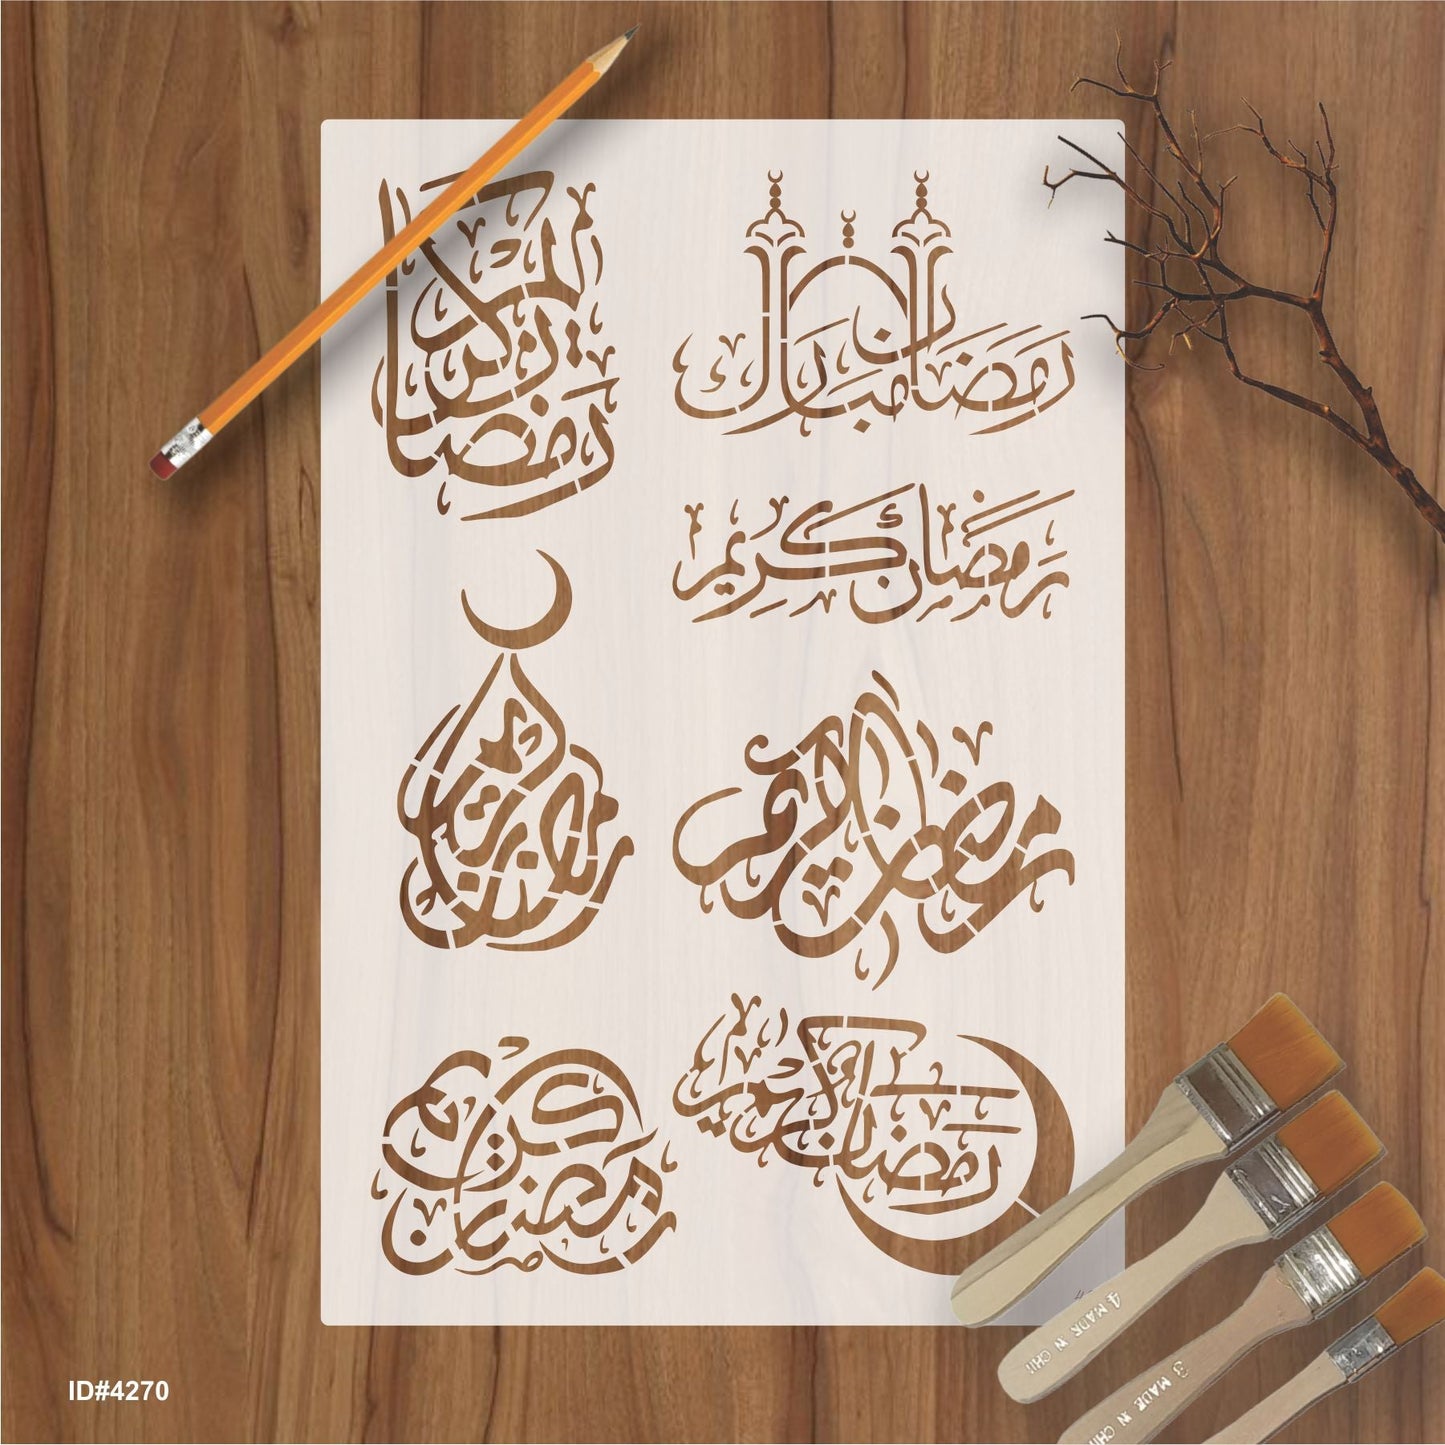 رمضان الكريم
رمضان مبارك
رمضان كريم
رمضان كريم
رمضان كريم
رمضان كريم
رمضان كريم
4 MADE IN CHI
3 MADE IN CHI
ID#4270